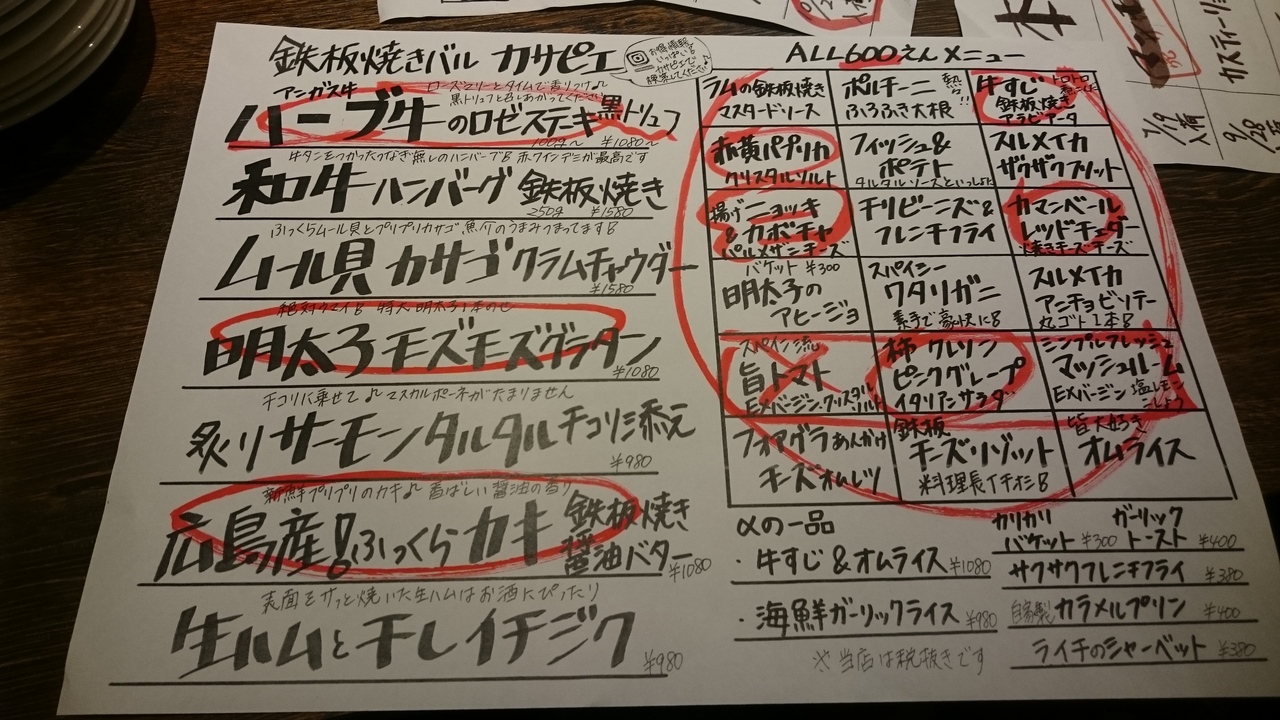 鉄板焼きバル カサピエ
お得情報
いっぱい!
カサピエで
検索してください♪
アンガス牛
ローズマリーとタイムで香りづけ♪
黒トリュフと召しあがってください
ハーブ牛のロゼステーキ黒トリュフ
100g〜 ¥1080〜
牛タンをつかったつなぎ無しのハンバーグ!! 赤ワインデミが最高です
和牛ハンバーグ 鉄板焼き
250g ¥1580
ふっくらムール貝とプリプリカサゴ 魚介のうまみつまってます!!
ムール貝 カサゴ クラムチャウダー
¥1580
絶対ウマイ!! 特大 明太子1本のせ
明太子モズモズグラタン
¥1080
チコリに乗せて♪マスカルポーネがたまりません
炙りサーモンタルタルチコリ三添え
¥980
新鮮プリプリのカキ♪ 香ばしい醤油の香り
広島産!ふっくらカキ 鉄板焼き
醤油バター
¥1080
表面をサッと焼いた生ハムはお酒にぴったり
生ハムと干しイチジク
¥980
ALL600えんメニュー
ラムの鉄板焼き
マスタードソース
ポルチーニ 熱々!!
ふろふき大根
牛すじ トロトロ
鉄板焼き
アラビアータ
赤黄パプリカ
クリスタルソルト
フィッシュ&
ポテト
タルタルソースといっしょに
スルメイカ
ザクザクフリット
揚げニョッキ
&カボチャ
パルメザンチーズ
チリビーンズ&
フレンチフライ
カマンベール
レッドチェダー
焼きチーズチーズ
バケット¥300
明太子の
アヒージョ
スパイシー
ワタリガニ
素手で豪快に!!
スルメイカ
アンチョビソテー
丸ゴト1本!!
スペイン流
旨トマト
EXバージン・クリスタルソルト
柿 クレソン
ピンクグレープ
イタリアンサラダ
シンプルフレッシュ
マッシュルーム
EXバージン 塩レモン
こしょう
フォアグラあんかけ
チーズオムレツ
鉄板
チーズリゾット
料理長イチオシ!!
皆大好き
オムライス
αの一品
・牛すじ&オムライス ¥1080
・海鮮ガーリックライス ¥980
カリカリ
バケット ¥300
ガーリック
トースト ¥400
サクサクフレンチフライ ¥380
自家製 カラメルプリン ¥400
ライチのシャーベット ¥380
※当店は税抜きです
7/19
入荷
9/28
カスティーリ